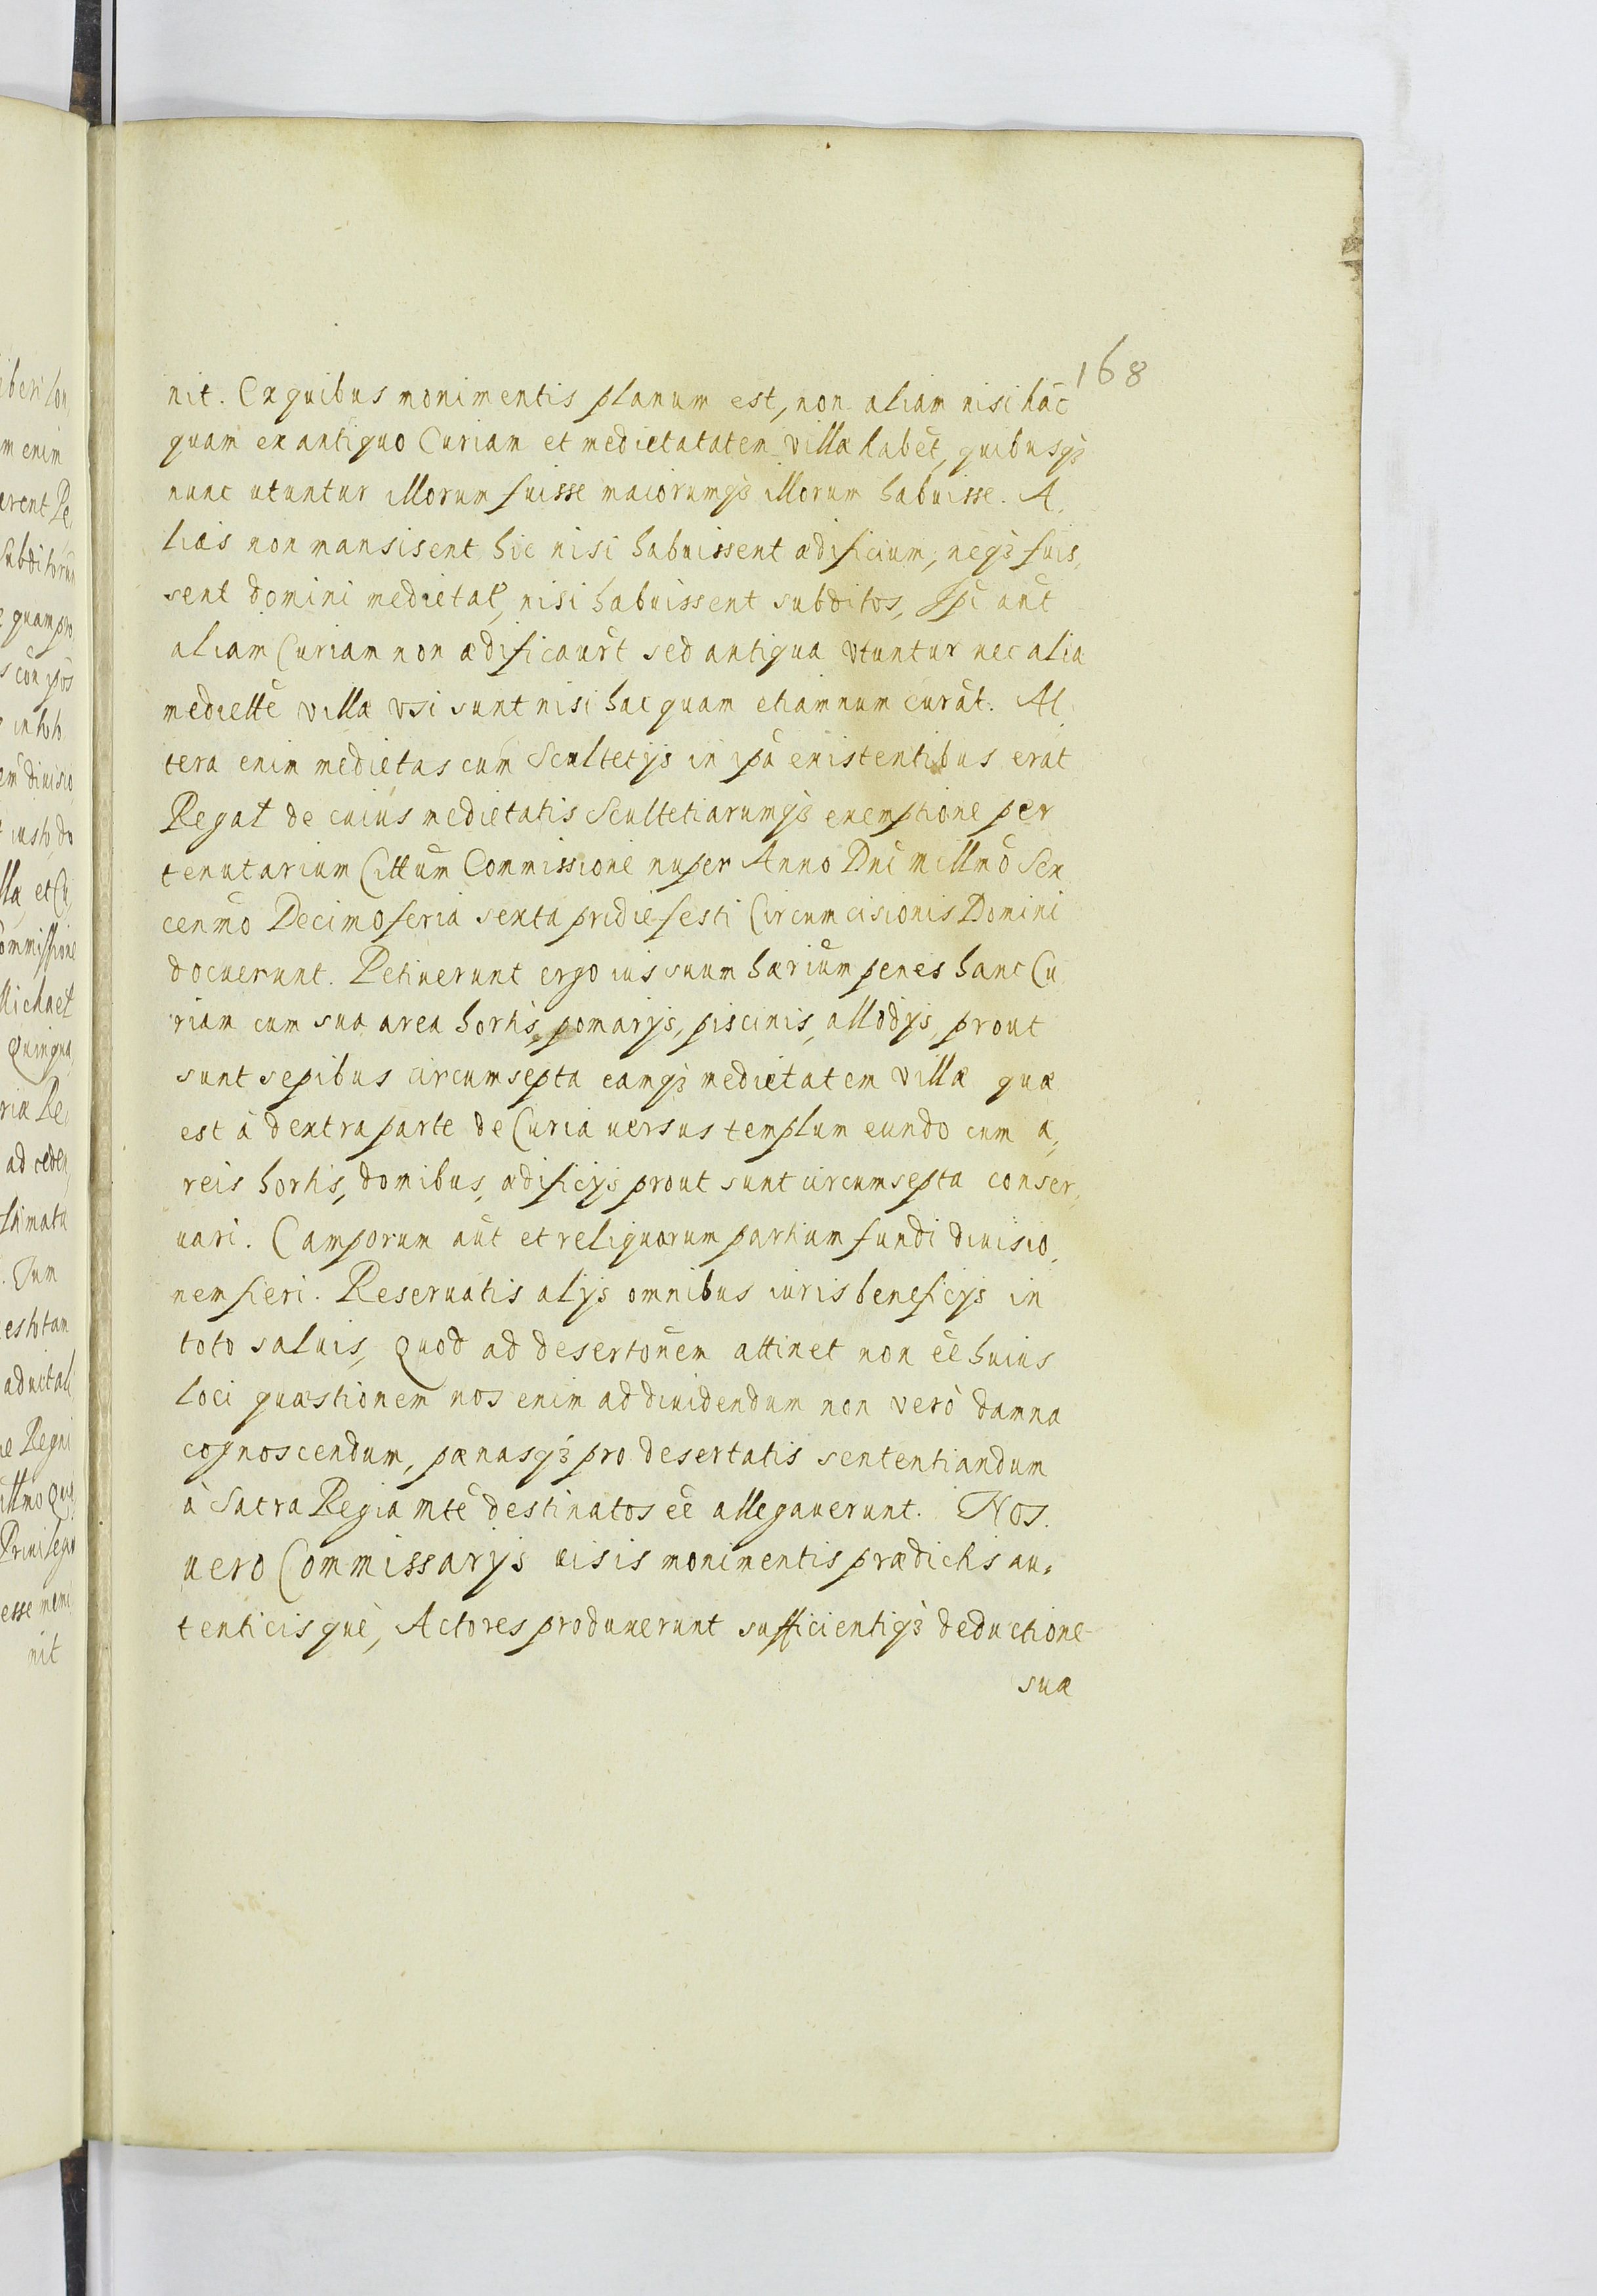 168
iberi Con,
nit. Ex quibus monimentis planum est, non aliam nisi hāc
m enim
quam ex antiquo Curiam et medietatatem villæ habēt, quibusqȝ
arent Re,
nunc utuntur illorum fuisse maiorumqȝ illorum habuisse. A,
subditorum
liæs non mansisent hic nisi habuissent ædificium, neqȝ fuis,
quam pro,
sent domini medietat, nisi habuissent subditos, Ipi aūt
s cōn ip̄os
aliam Curiam non ædificaur̄t sed antiqua vtuntur nec alia
in hoh.
mediettē villæ vsi sunt nisi hac quam etiamnum curāt. Al,
em diuisio,
tera enim medietas cum Scultetijs in ipā existentibus erat
iusto, do
Regal de cuius medietatis Scultetiarumqȝ exemptione per
lla, et Cu,
tenutarium Cittum Commissione nuper Anno Dnī millmō Sex
ommissione
cenmō Decimo feria sexta pridie festi Circumcisionis Domini
Michael
docuerunt. Petiuerunt ergo ius suum hærium penes hanc Cu
Quinqua,
riam cum sua area hortis, pomarijs, piscinis, allodijs, prout
riæ Re,
sunt sepibus circumsepta eamqȝ medietatem villæ quæ
ad ceden,
est à dextra parte de Curia uersus templum eundo cum a,
timatu
reis hortis, domibus, ædificijs prout sunt circumsepta conser,
. Tum
uari. Camporum aūt et reliquorum partium fundi diuisio,
estotam
nem fieri. Reseruatis alijs omnibus iuris beneficijs in
ad uital
toto saluis, Quod ad desertōnem attinet non eē huius
Regni
loci quæstionem nos enim ad diuidendum non verò damna
illmo Qui,
cognoscendum, pænasqȝ pro desertatis sententiandum
Priuilegij
à Sacra Regia Mtē destinatos eē allegauerunt. Nos.
esse memi
uero Commissarijs uisis monimentis prædictis au,
nit
tenticis què, Actores produxerunt sufficientiqȝ deductione
suæ